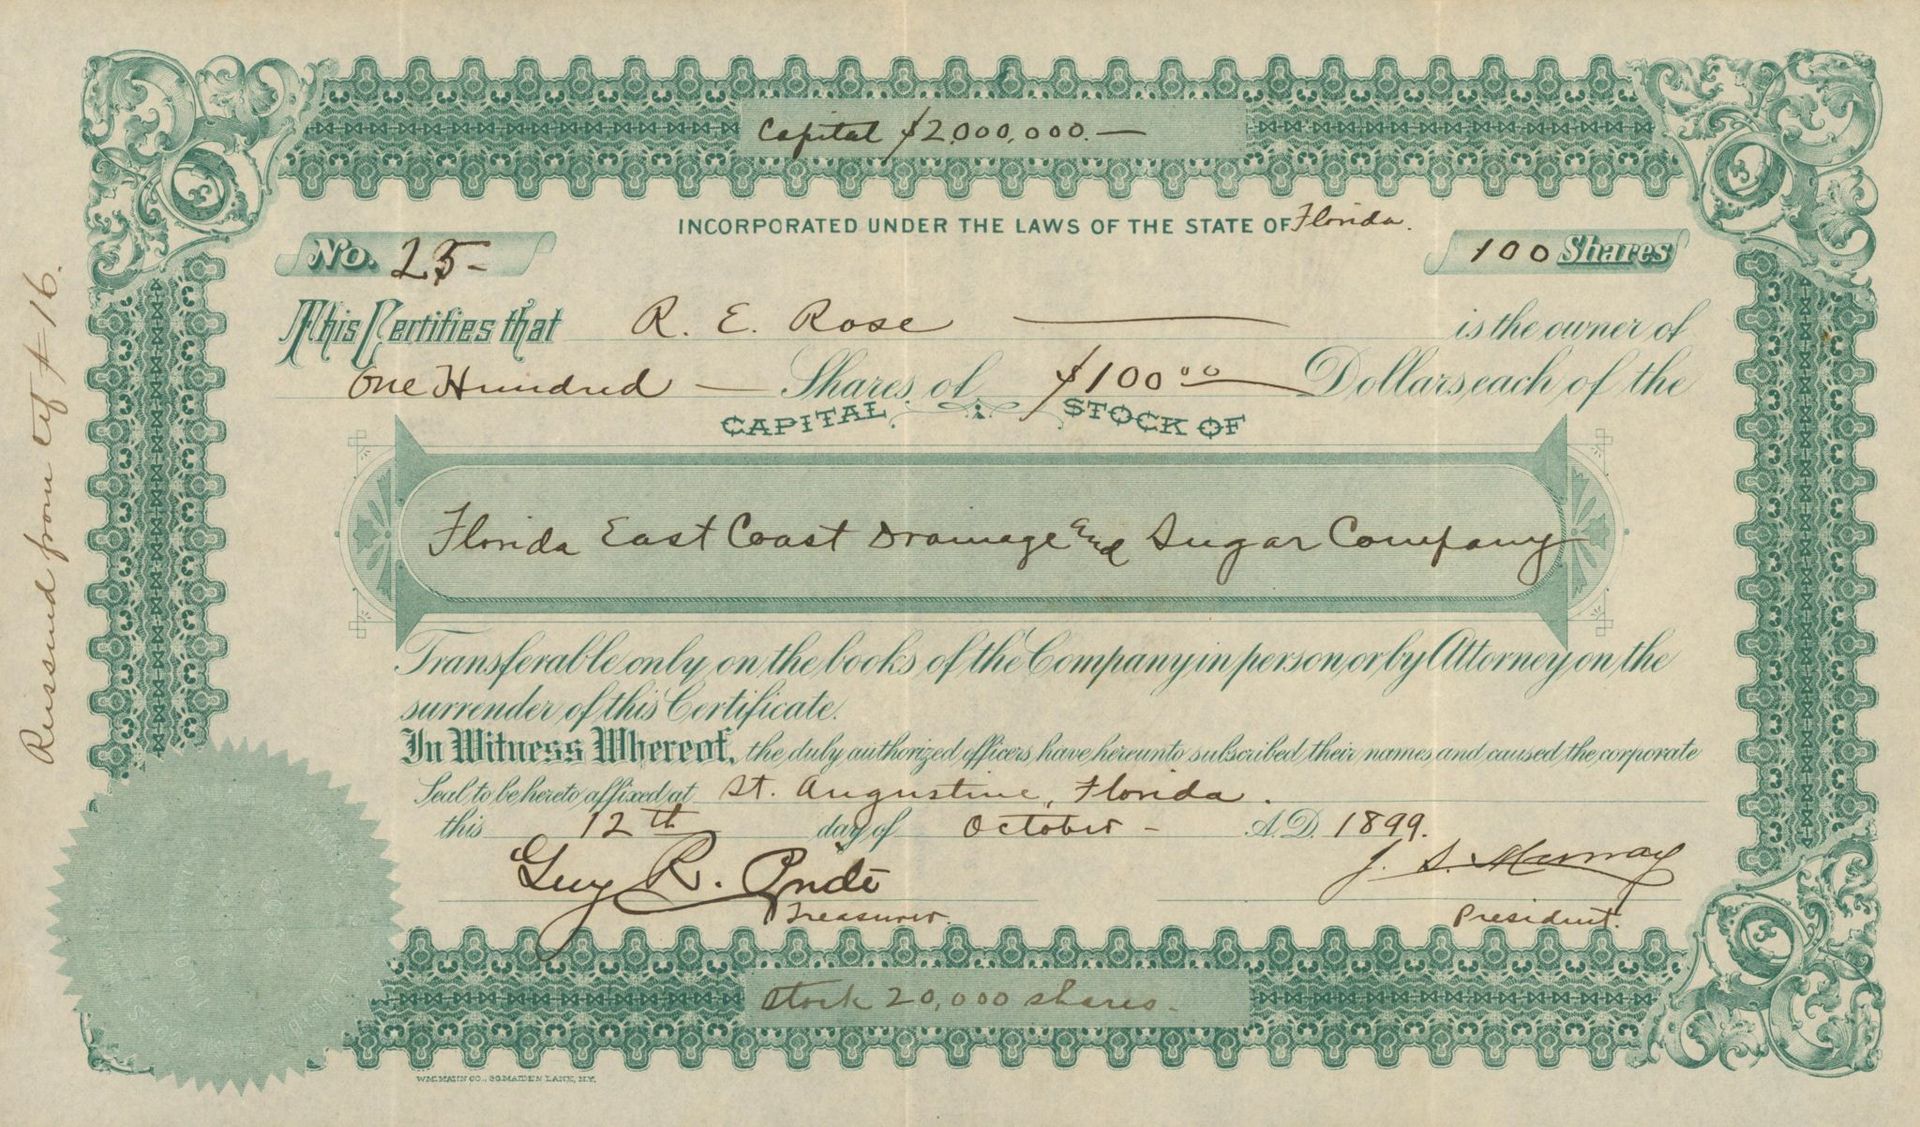 Capital $2,000,000.—
INCORPORATED UNDER THE LAWS OF THE STATE OF Florida.
No. 25-
100 Shares
This Certifies that R. E. Rose — is the owner of
One Hundred — Shares of $100.00 Dollars each of the
CAPITAL STOCK OF
Florida East Coast Drainage and Sugar Company
Transferable only on the books of the Company in person, or by Attorney on the
surrender of this Certificate.
In Witness Whereof, the duly authorized officers have hereunto subscribed their names and caused the corporate
Seal to be hereto affixed at St. Augustine, Florida.
this 12th day of October - A.D. 1899.
Guy R.
J. S. Murray
Treasurer.
President.
Stock 20,000 shares.
WM. MANN CO., MAIDEN LANE, N.Y.
Reissued from ctf # 16.